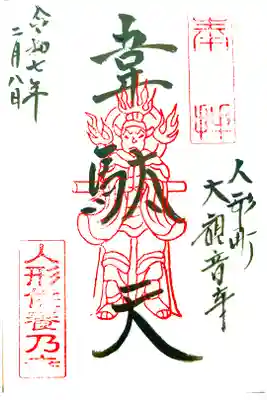 奉拝
韋駄天
人形町
大観音寺
令和七年
二月八日
人形供養乃寺